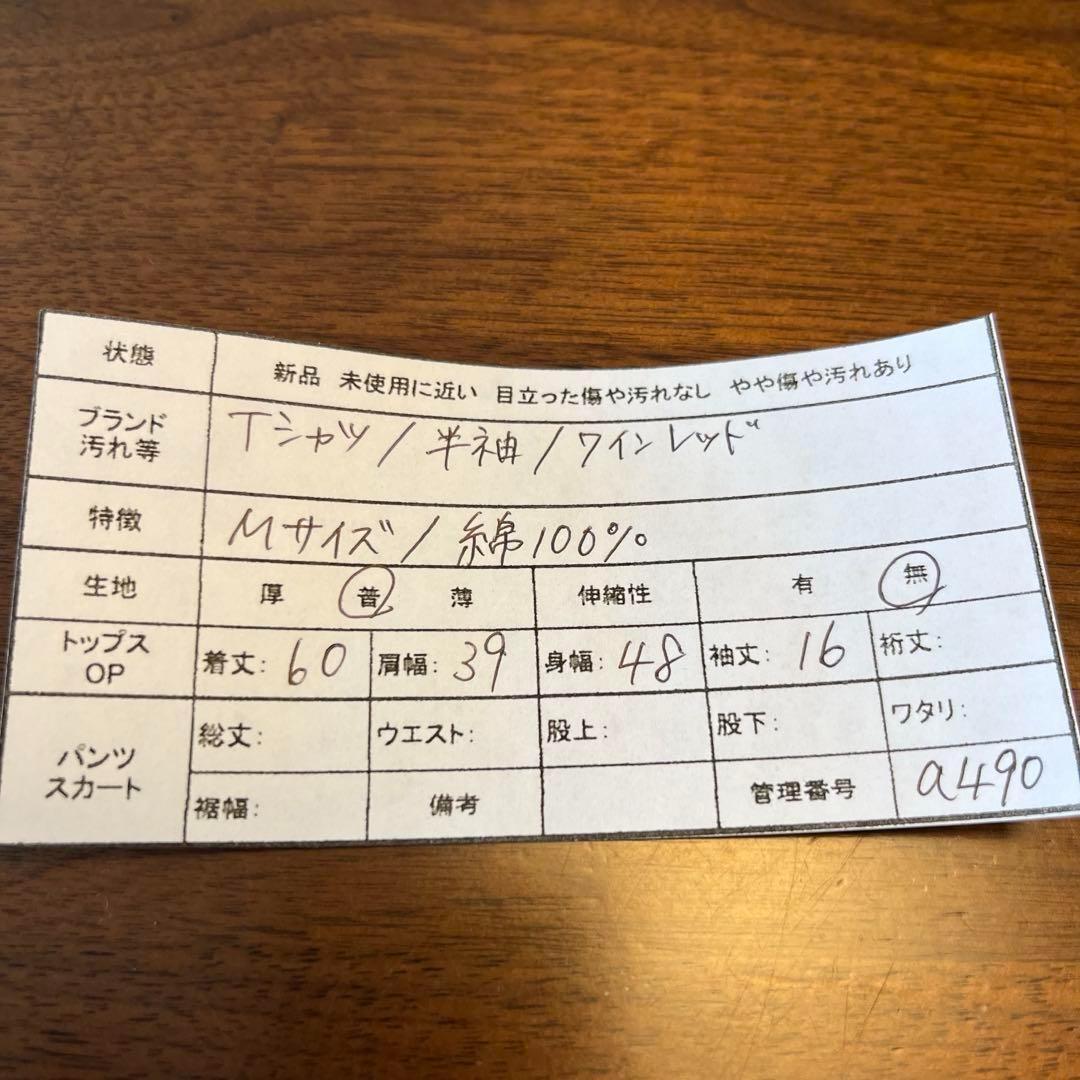 状態 新品 未使用に近い 目立った傷や汚れなし やや傷や汚れあり
ブランド
汚れ等 Tシャツ/半袖/ワインレッド
特徴 Mサイズ/綿100%
生地 厚 普 薄 伸縮性 有 無
トップス
OP 着丈:60 肩幅:39 身幅:48 袖丈:16 裄丈:
パンツ
スカート 総丈: ウエスト: 股上: 股下: ワタリ:
裾幅: 備考 管理番号 a490